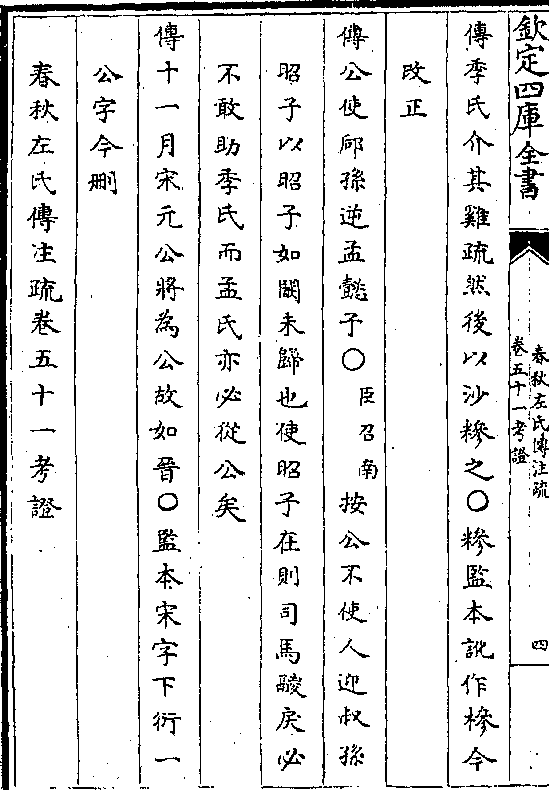 欽定四庫全書
春秋左氏傳注疏
卷五十一考證
四
傳季氏介其雞疏然後以沙糝之〇糝監本訛作椮今
改正
傳公使郈孫逆孟懿子〇臣召南按公不使人迎叔孫
昭子以昭子如闞未歸也使昭子在則司馬鬷戾必
不敢助季氏而孟氏亦必從公矣
傳十一月宋元公將為公故如晉〇監本宋字下衍一
公字今刪
春秋左氏傳注疏卷五十一考證